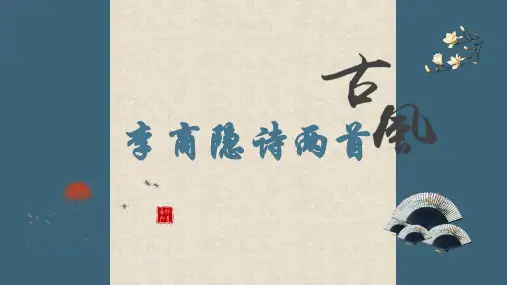 古風
李商隐诗两首